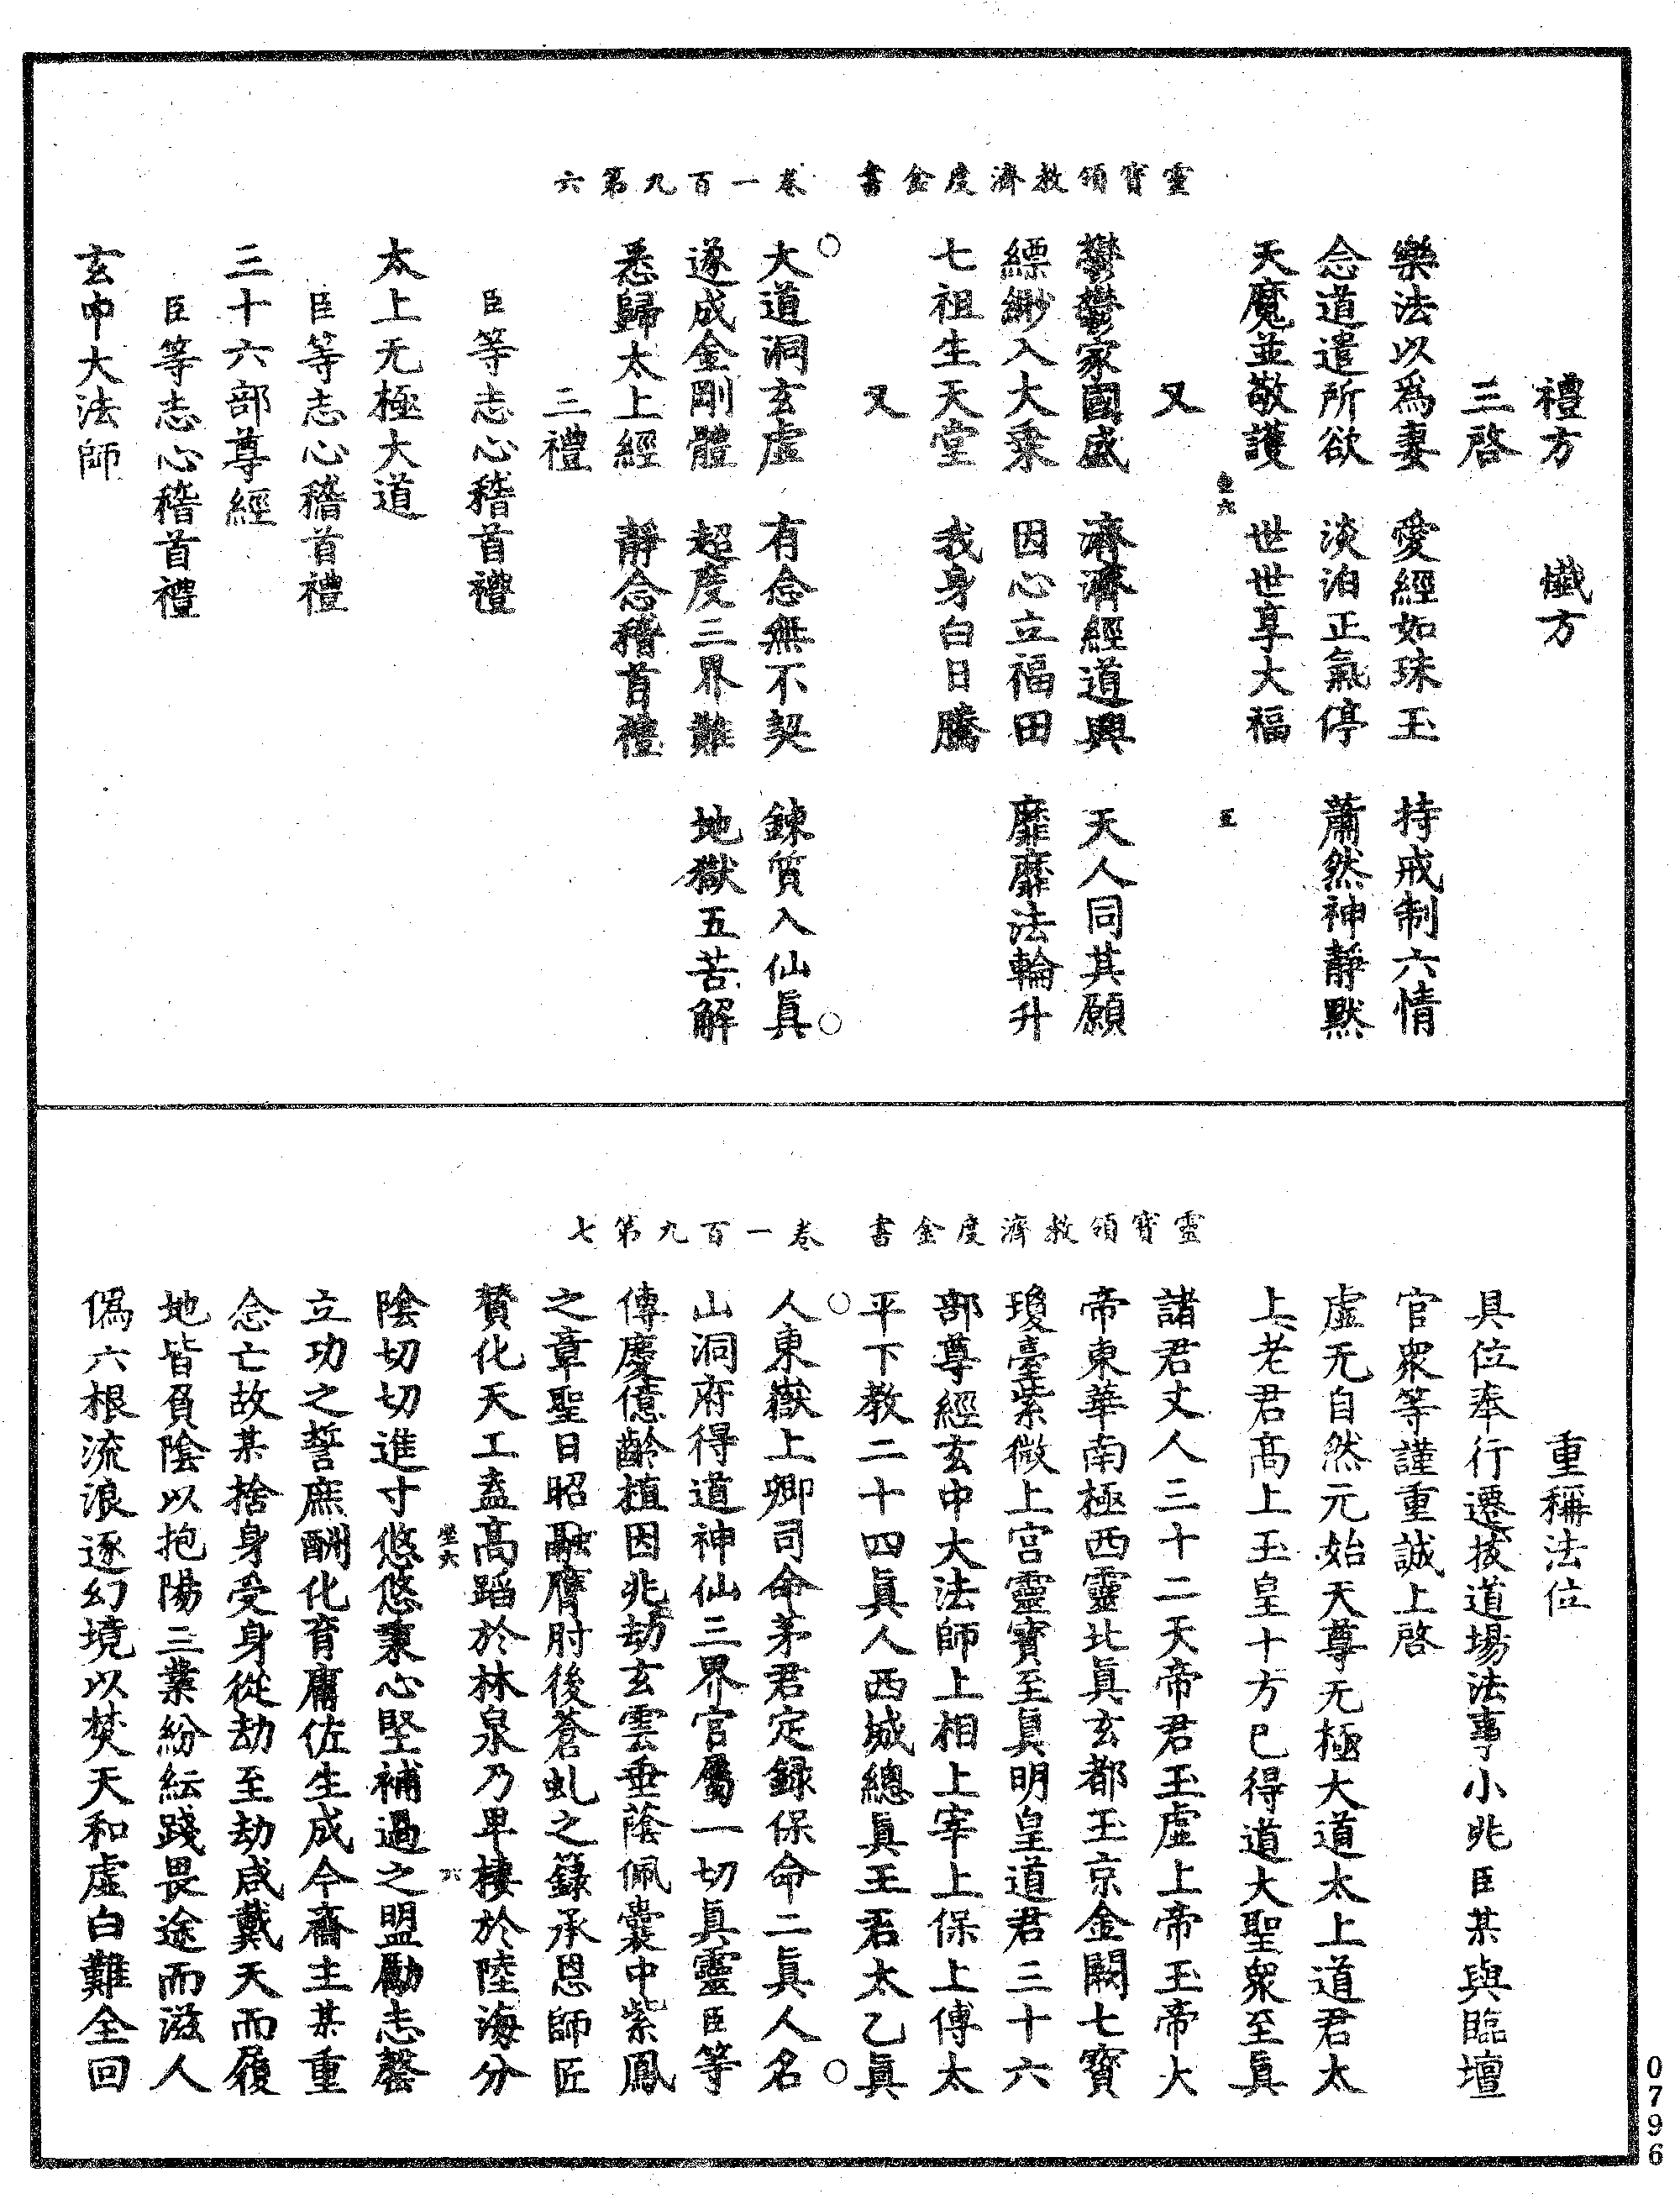 靈寶領教濟度金書　卷一百九第六
禮方　懺方
三啓
樂法以爲妻　愛經如珠玉　持戒制六情
念道遣所欲　淡泊正氣停　蕭然神靜默
天魔並敬護　世世享大福
又
鬱鬱家國盛　濟濟經道興　天人同其願
縹緲入大乗　因心立福田　靡靡法輪升
七祖生天堂　我身白日騰
又
大道洞玄虛　有念無不契　鍊質入仙眞
遂成金剛體　超度三界難　地獄五苦解
悉歸太上經　靜念稽首禮
三禮
臣等志心稽首禮
太上无極大道
臣等志心稽首禮
三十六部尊經
臣等志心稽首禮
玄中大法師
靈寶領教濟度金書　卷一百九第七
重稱法位
具位奉行遷拔道場法事小兆臣某與臨壇
官衆等謹重誠上啓
虛无自然元始天尊无極大道太上道君太
上老君高上玉皇十方已得道大聖衆至眞
諸君丈人三十二天帝君玉虛上帝玉帝大
帝東華南極西靈北眞玄都玉京金闕七寶
瓊臺紫微上宮靈寶至眞明皇道君三十六
部尊經玄中大法師上相上宰上保上傅太
平下教二十四眞人西城總眞王君太乙眞
人東嶽上卿司命茅君定録保命二眞人名
山洞府得道神仙三界官屬一切眞靈臣等
傳慶億齡植因兆劫玄雲垂蔭佩囊中紫鳳
之章聖日昭融膺肘後蒼虬之籙承恩師匠
贊化天工盍高蹈於林泉乃卑棲於陸海分
陰切切進寸悠悠秉心堅補過之盟勵志罄
立功之誓庶酬化育庸佐生成今齋主某重
念亡故某捨身受身從劫至劫咸戴天而履
地皆負陰以抱陽三業紛紜踐畏途而滋人
僞六根流浪逐幻境以焚天和虛白難全回
0796